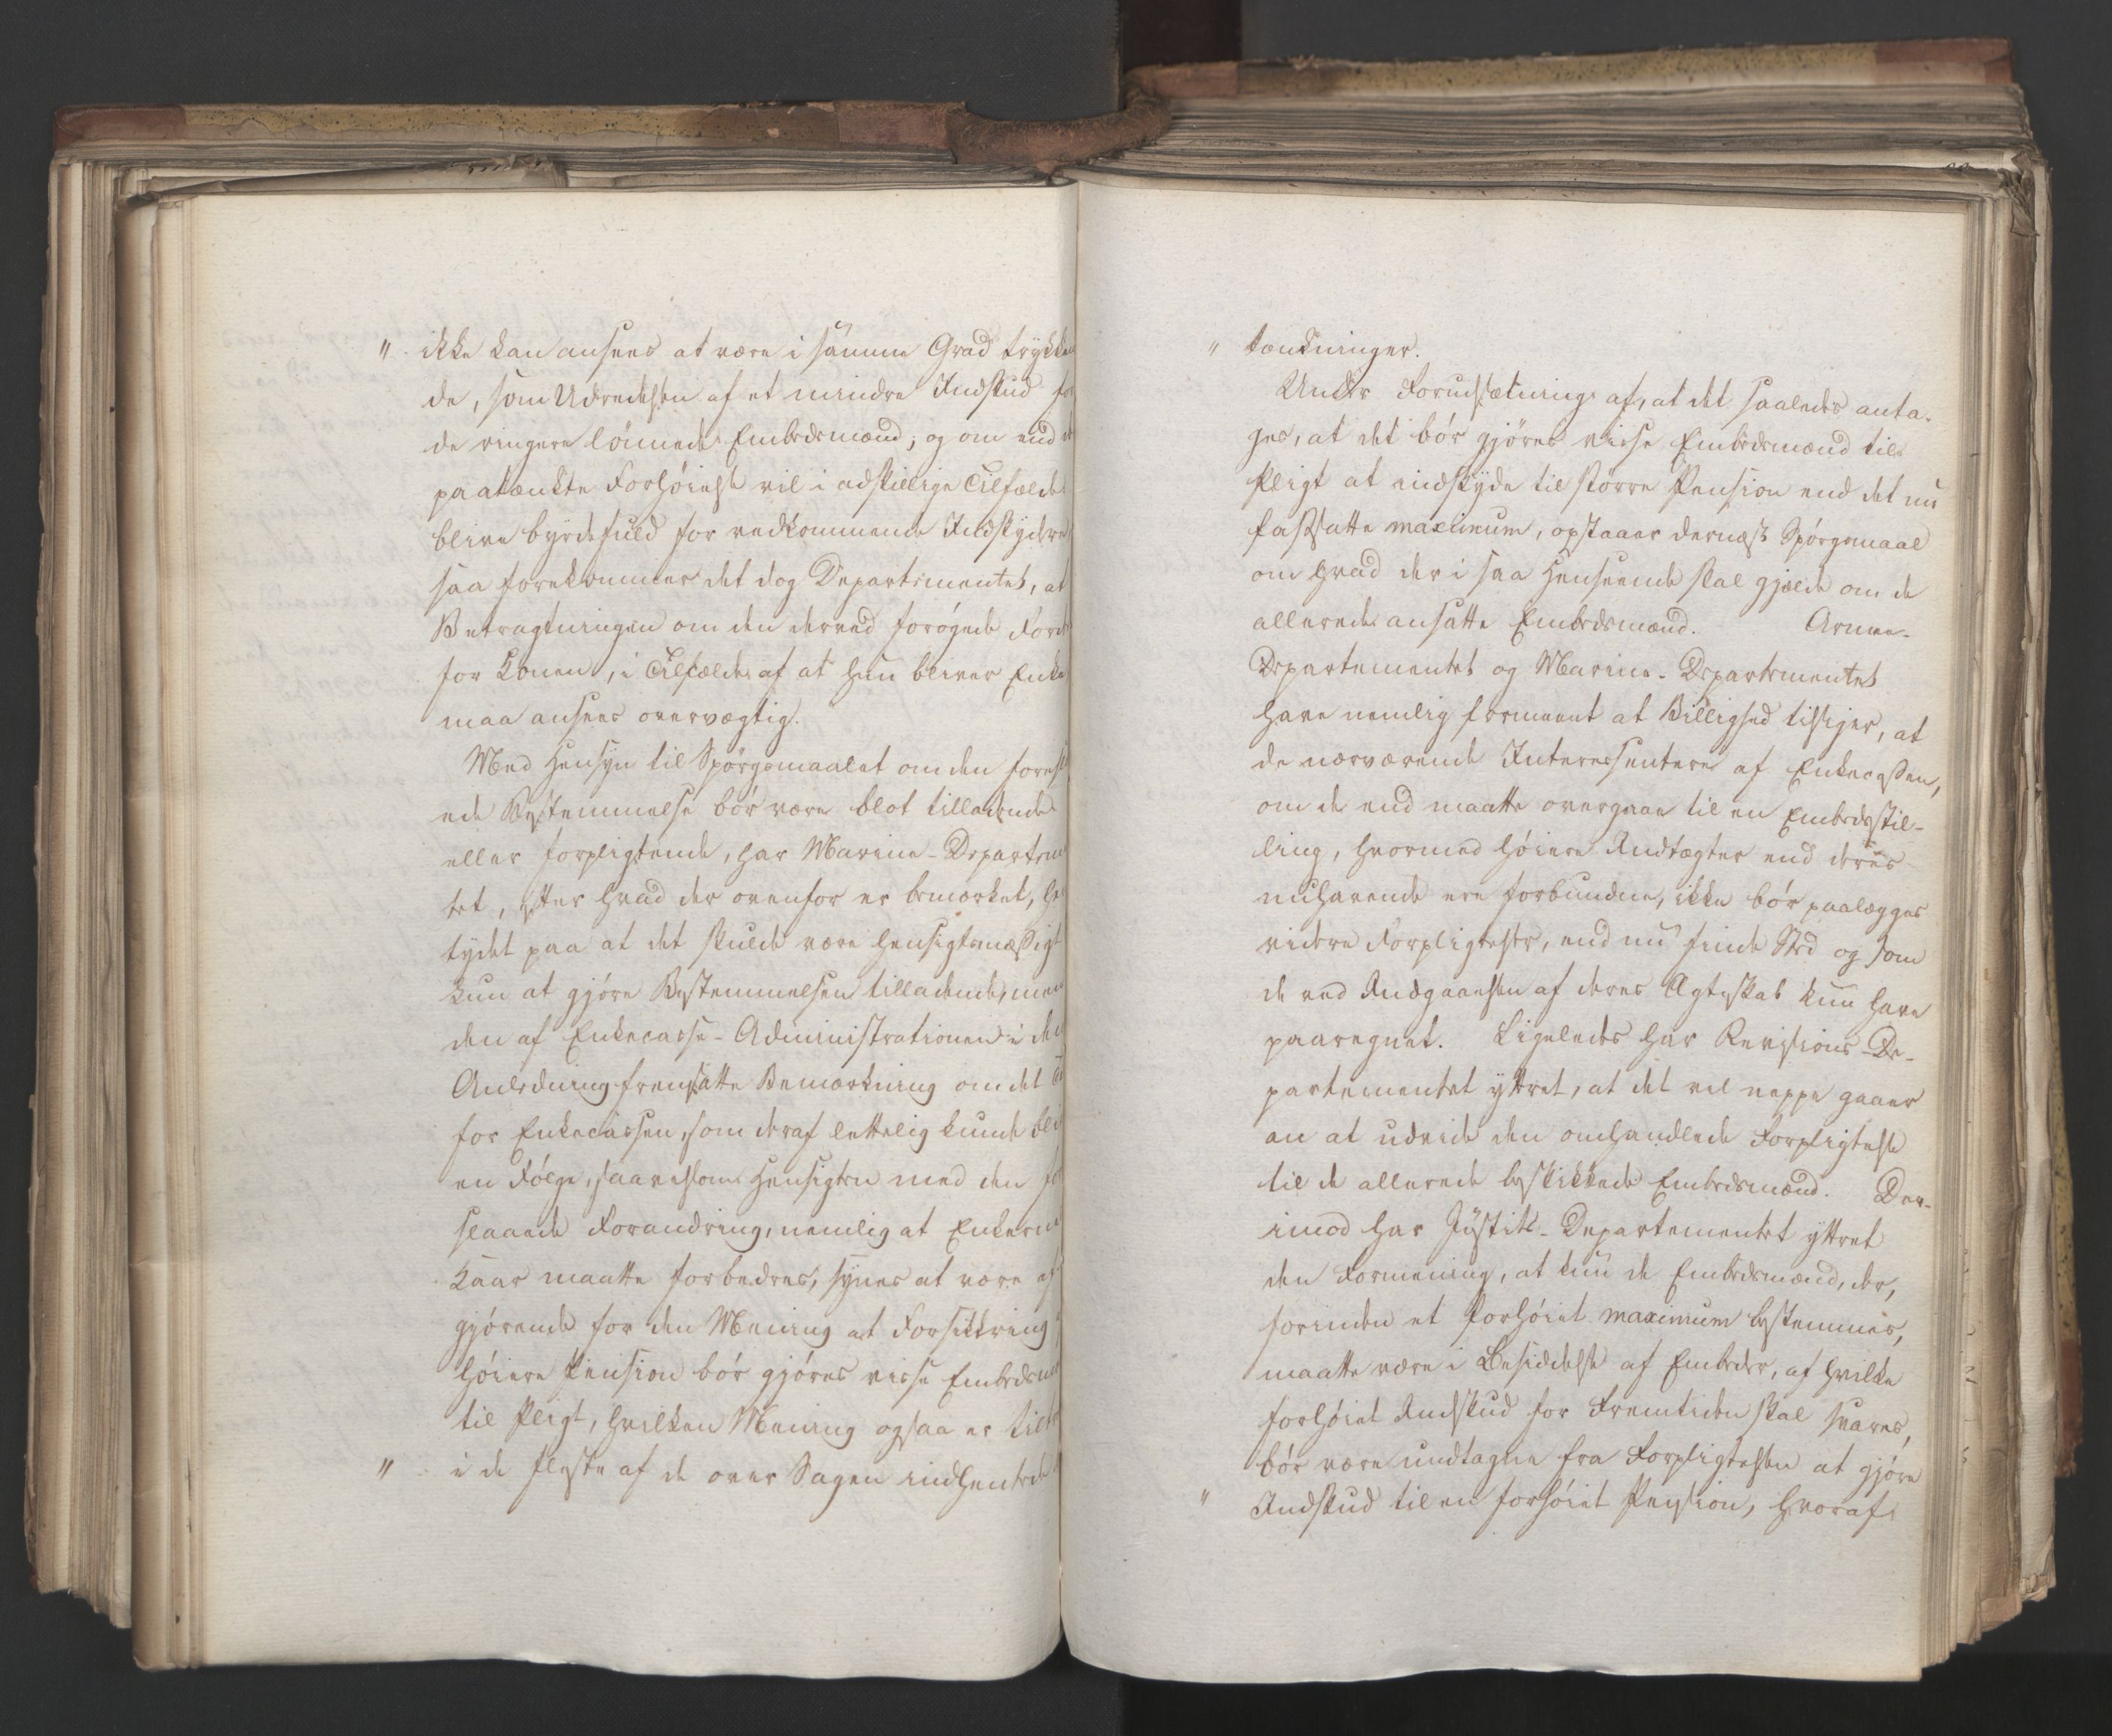 " ikke kan ansees at være i samme Grad trykken
de, som Udredelsen af et mindre Indskud for
de ringere lönnede Embedsmænd; og om end
paatænkte Forhöielse vil i adskillige Tilfælde
blive byrdefuld for vedkommende Indskydere
saa forekommer det dog Departementet, at
Betragtningen om den derved forögede Forde
for Konen, i Tilfælde af at hun bliver Enke
maa ansees overvægtig.
Med Hensyn til Spörgsmaalet om den foresl
ede Bestemmelse bör være blot tilladende
eller forpligtende, har Marine-Departemen
tet, efter hvad der ovenfor er bemærket, he
tydet paa at det skulde være hensigtsmæssigt
kun at gjöre Bestemmelsen tilladende, men
den af Enkecasse-Administrationen i den
Anledning fremsatte Bemærkning om det
for Enkecassen, som deraf lettelig kunde bli
en Fölge, saavelsom Hensigten med den fo
slaaede Forandring, nemlig at Enkerne
Kaar maatte forbedres, synes at være af
gjörende for den Mening at Forsikkring
höiere Pension bör gjöres visse Embedsmæ
til Pligt, hvilken Mening ogsaa er tilt
" i de fleste af de over Sagen indhentede
" tænkninger.
Under Forudsætning af, at det saaledes anta-
ges, at det bör gjöres visse Embedsmænd til
Pligt at indskyde til större Pension end det nu
fastsatte maximum, opstaaer dernæst Spörgsmaal
om hvad der i saa Henseende skal gjælde om de
allerede ansatte Embedsmænd. Armee-
Departementet og Marine-Departementet
have nemlig formeent at Billighed tilsiger, at
de nærværende Interessentere af Enkecassen,
om de end maatte overgaae til en Embedsstil-
ling, hvormed höiere Indtægter end deres
nuhavende ere forbundne, ikke bör paalægges
videre Forpligtelser, end nu finde Sted og som
de ved Indgaaelsen af deres Ægteskab kun have
paaregnet. Ligeledes har Revisions-De-
partementet yttret, at det vel neppe gaaer
an at udvide den omhandlede Forpligtelse
til de allerede beskikkede Embedsmænd. Der-
imod har Justits-Departementet yttret
den Formening, at kun de Embedsmænd, der,
forinden et forhöiet maximum bestemmes,
maatte være i Besiddelse af Embeder, af hvilke
forhöiet Indskud for Fremtiden skal svares,
bör være undtagne fra Forpligtelsen at gjöre
" Indskud til en forhöiet Pension, hvoraf